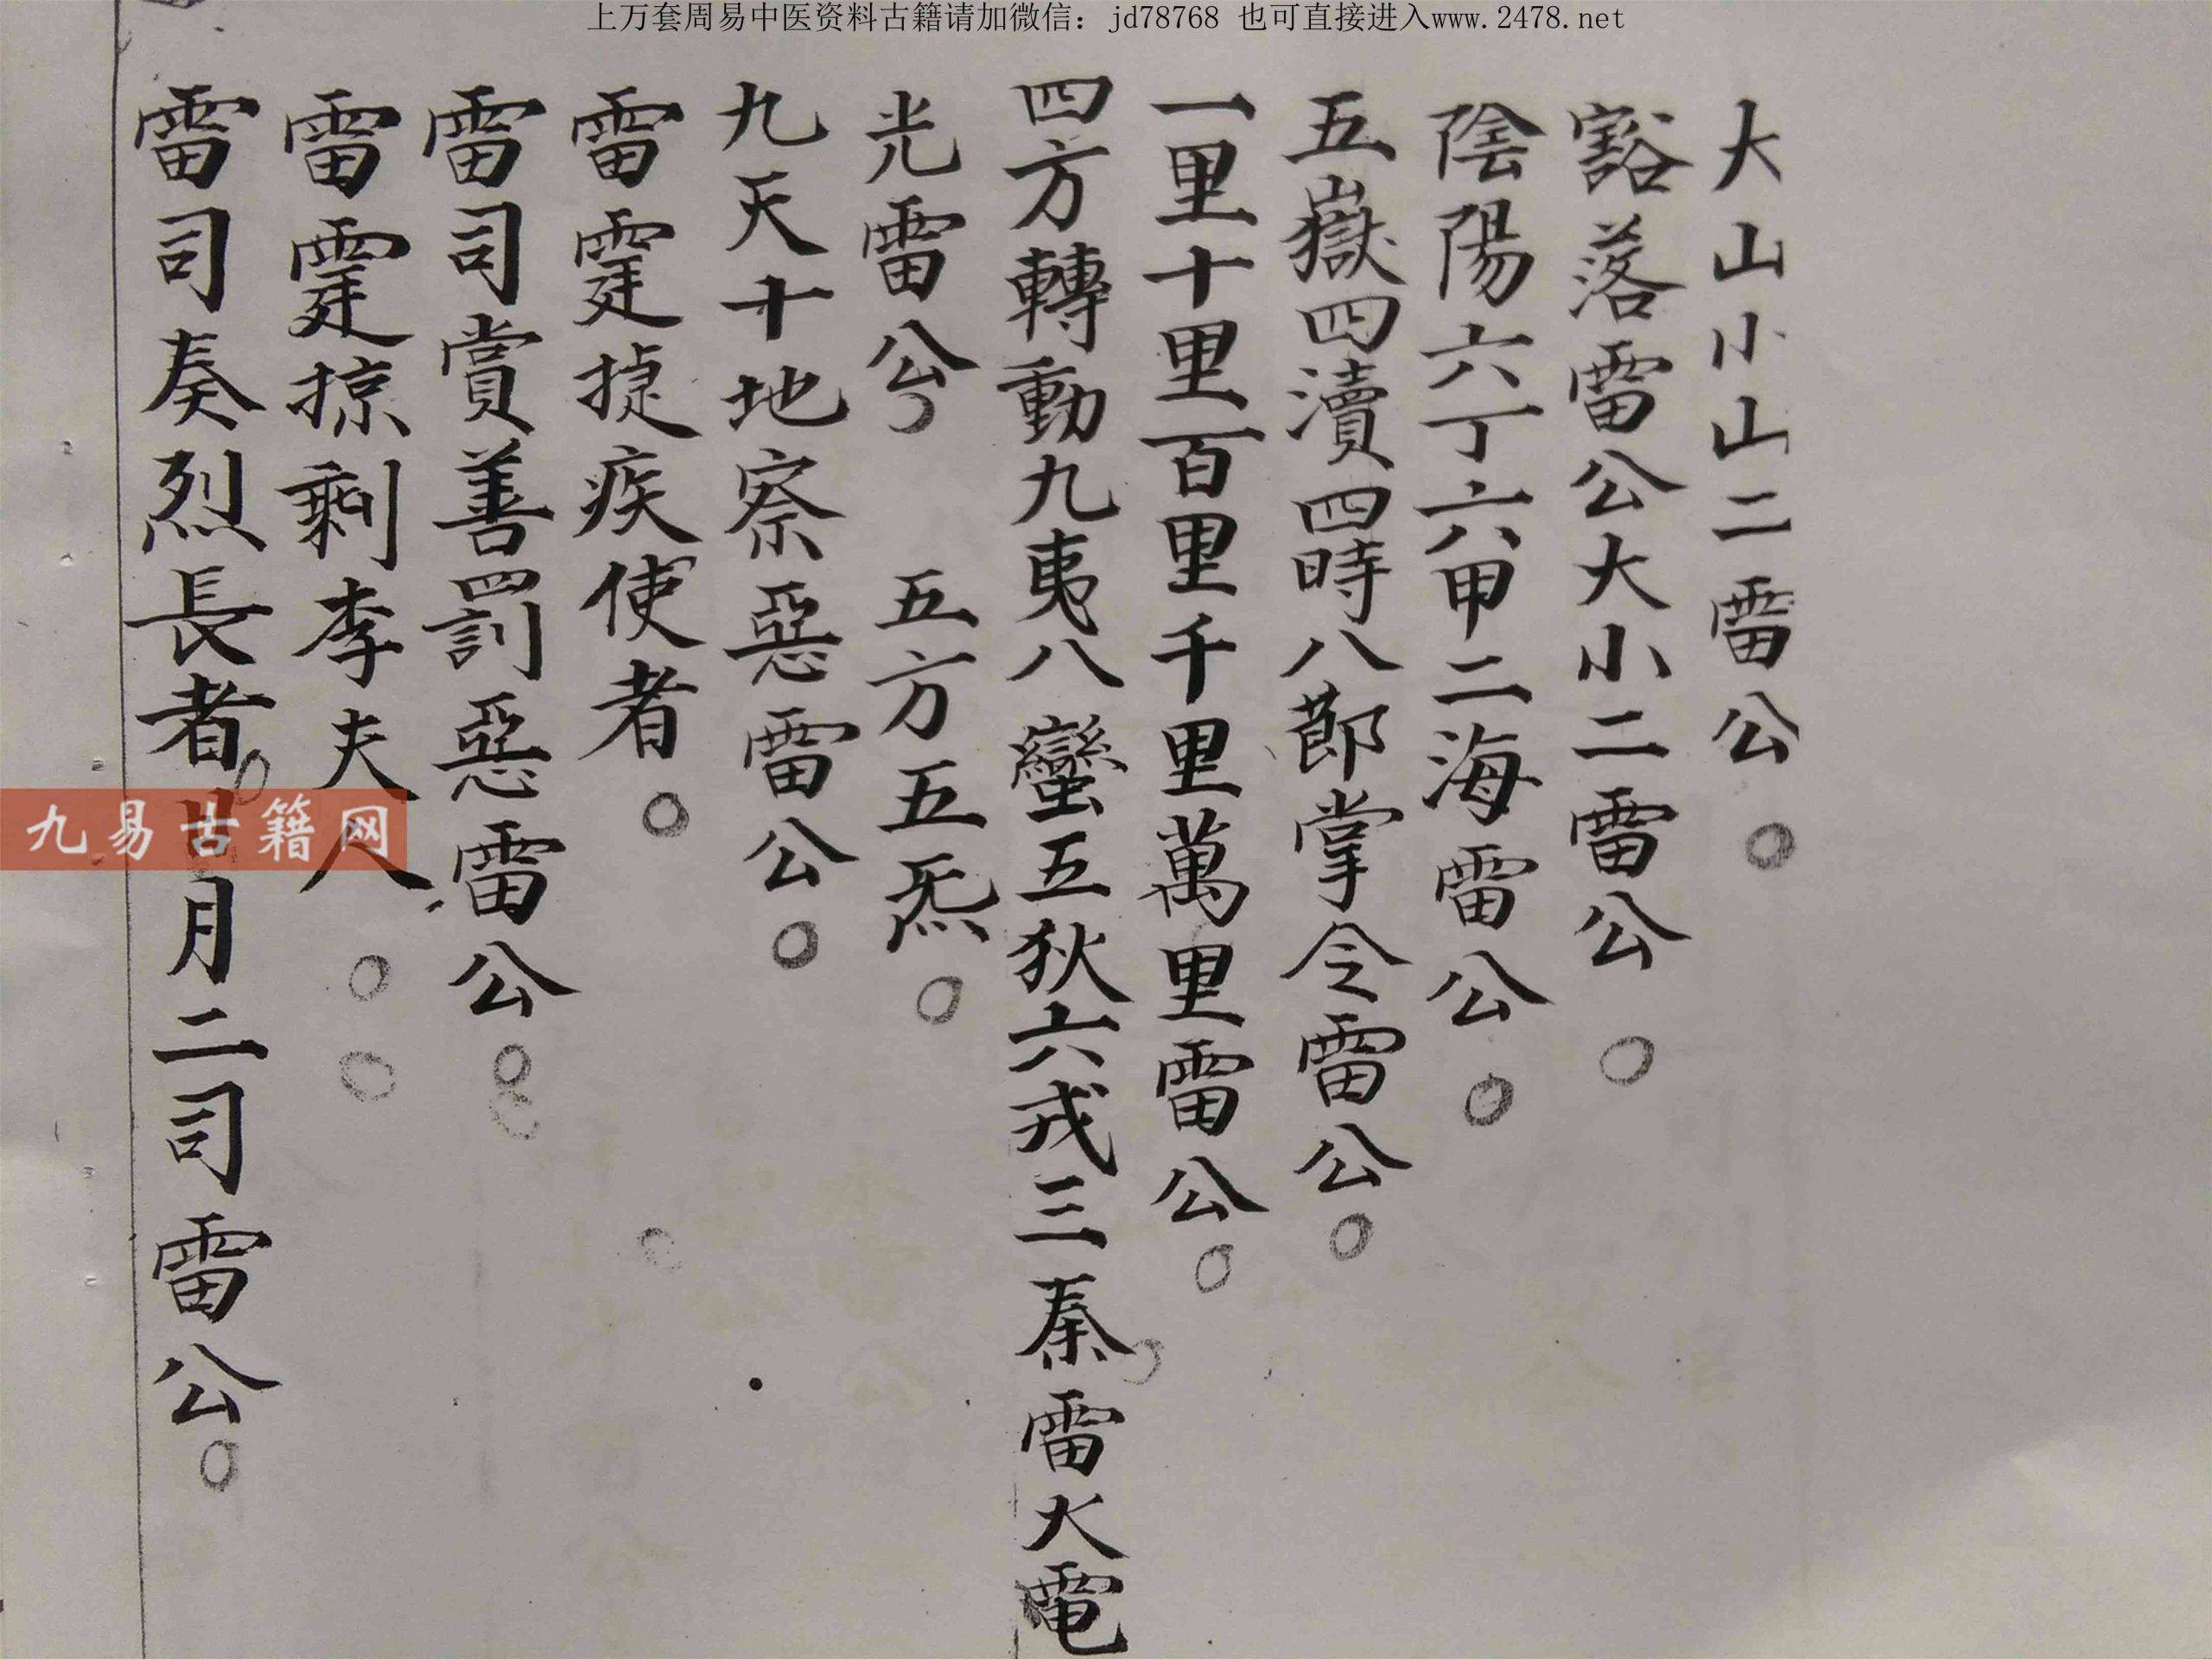 上万套周易中医资料古籍请加微信：jd78768 也可直接进入www.2478.net
大山小山二雷公
豁落雷公大小二雷公
陰陽六丁六甲二海雷公
五嶽四瀆四時八節掌令雷公
一里十里百里千里萬里雷公
四方轉動九夷八蠻五狄六戎三秦雷火電
光雷公 五方五炁
九天十地察惡雷公
雷霆捷疾使者
雷司賞善罰惡雷公
雷霆掠剩李夫人
雷司奏烈長者 月二司雷公
九易古籍网